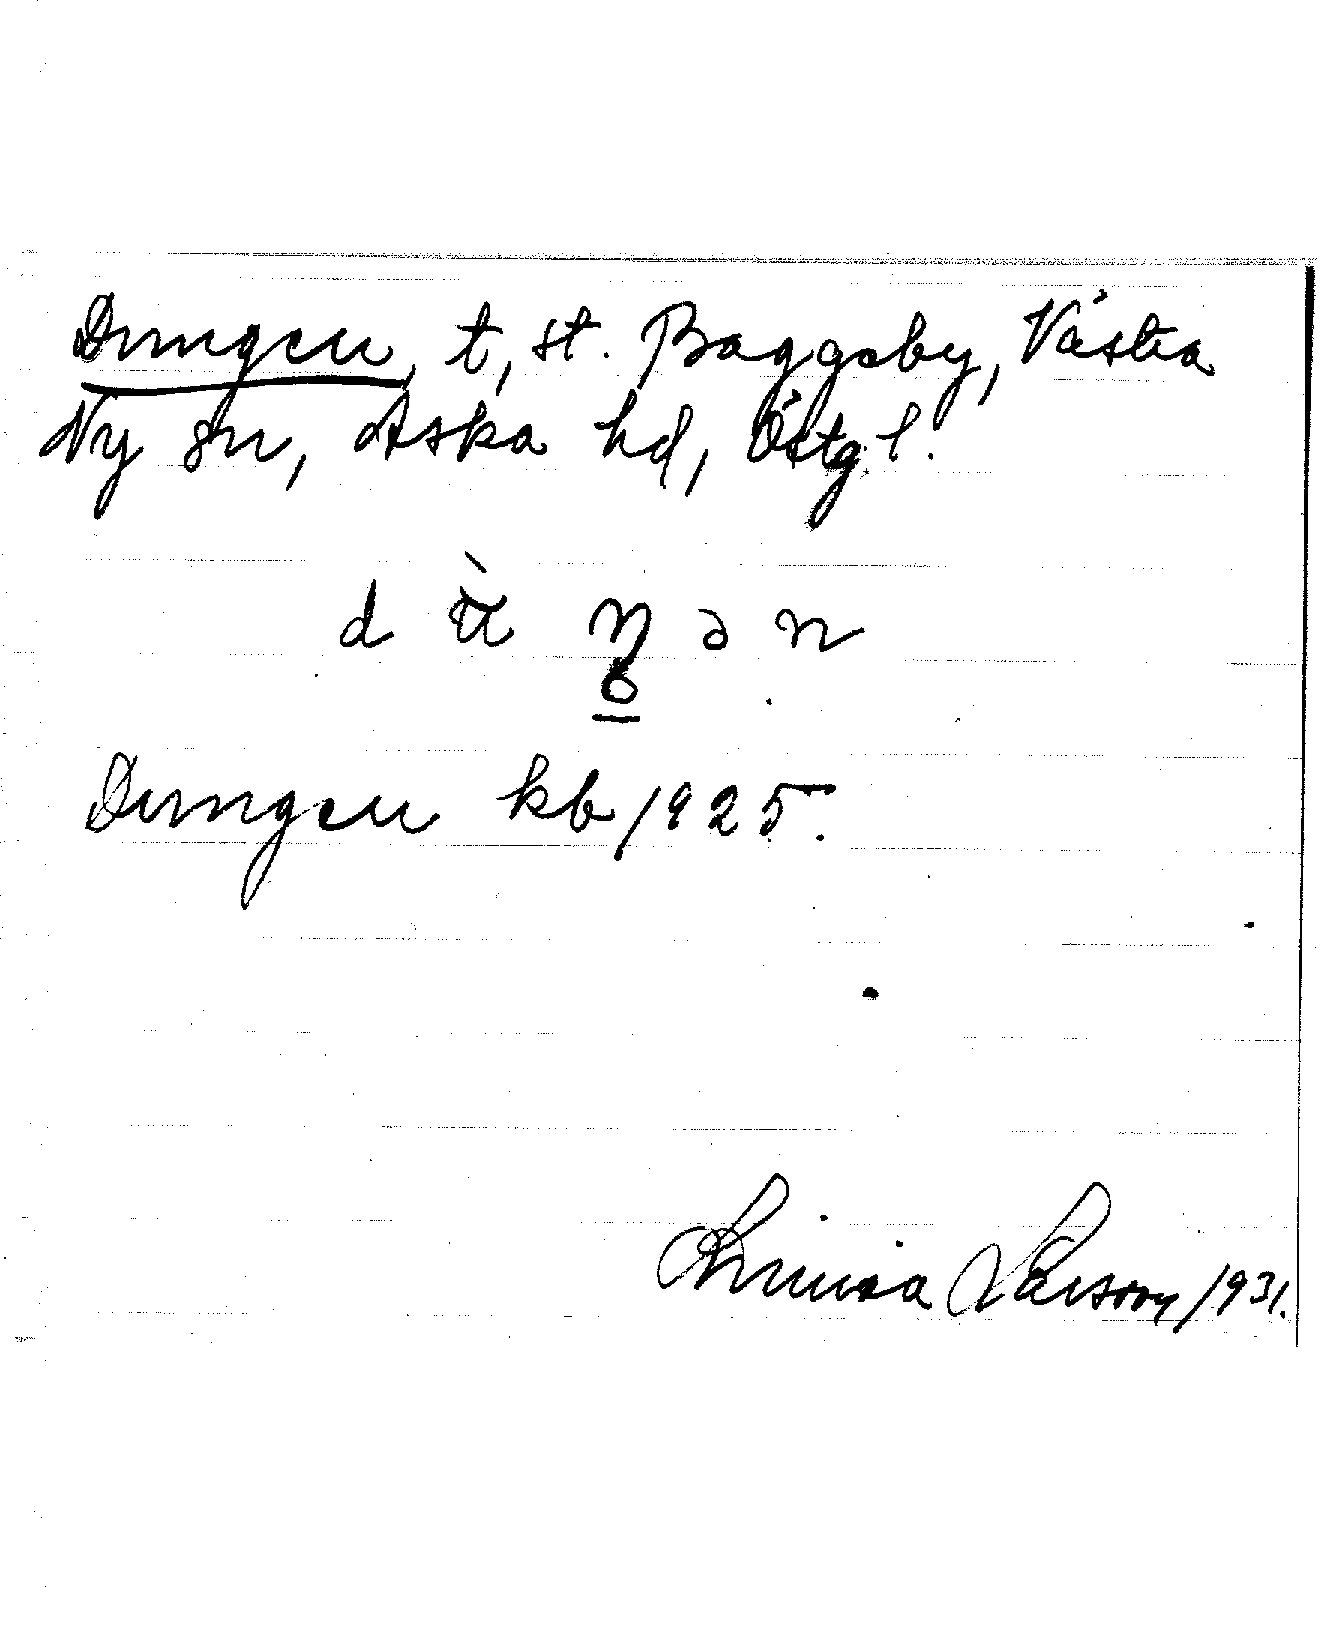 Dungen, t, st. Baggeby, Västra
Ny sn, Aska hd, Östg l.
d ŋ ə n
Dungen kb 1925.
Larsson 1931.